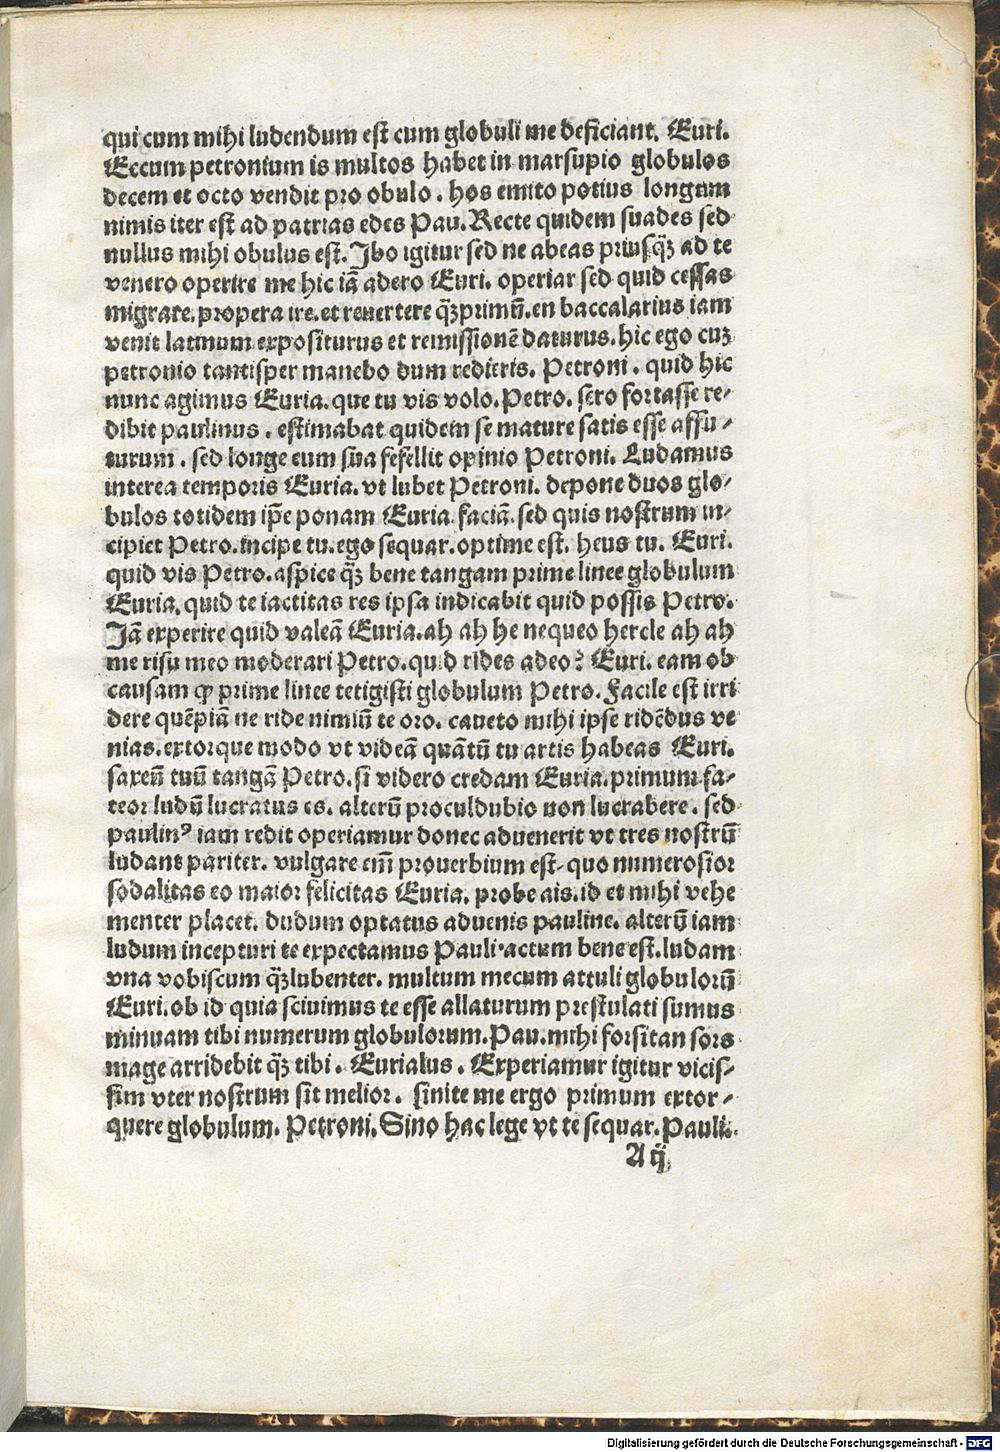 qui cum mihi ludendum est cum globuli me deficiant. Euri.
Eccum petronium is multos habet in marsupio globulos
decem et octo vendit pro obulo. hos emito potius longum
nimis iter est ad patrias edes Pau. Recte quidem suades sed
nullus mihi obulus est. Ibo igitur sed ne abeas priusqȝ̃ ad te
venero operire me hic iã adero Euri. operiar sed quid cessas
migrare. propera ire. et reuertere qȝ̃primũ. en baccalarius iam
venit latinum expositurus et remissionẽ daturus. hic ego cuȝ
petronio tantisper manebo dum redieris. Petroni. quid hic
nunc agimus Euria. que tu vis volo. Petro. sero fortasse re⸗
dibit paulinus. estimabat quidem se mature satis esse affu⸗
turum. sed longe eum sua fefellit opinio Petroni. Ludamus
interea temporis Euria. vt lubet Petroni. depone duos glo⸗
bulos totidem ip̃e ponam Euria. faciã. sed quis nostrum in⸗
cipiet Petro. incipe tu. ego sequar. optime est. heus tu. Euri.
quid vis Petro. aspice qȝ̃ bene tangam prime linee globulum
Euria. quid te iactitas res ipsa indicabit quid possis Petro.
Iã experire quid valeã Euria. ah ah he nequeo hercle ah ah
me risu meo moderari Petro. quid rides adeo? Euri. eam ob
causam ꝙ prime linee tetigisti globulum Petro. Facile est irri
dere quẽpiã ne ride nimiũ te oro. caueto mihi ipse ridẽdus ve
nias. extorque modo vt videã quãtũ tu artis habeas Euri.
saxeũ tuũ tangã Petro. si videro credam Euria. primum fa⸗
teor ludũ lucratus es. alterũ proculdubio non lucrabere. sed
paulinꝰ iam redit operiamur donec aduenerit vt tres nostrũ
ludant pariter. vulgare em̃ prouerbium est. quo numerosior
sodalitas eo maior felicitas Euria. probe ais. id et mihi vehe
menter placet. dudum optatus aduenis pauline. alterũ iam
ludum incepturi te expectamus Pauli. actum bene est. ludam
vna vobiscum qȝ̃lubenter. multum mecum attuli globulorũ
Euri. ob id quia sciuimus te esse allaturum prestulati sumus
minuam tibi numerum globulorum. Pau. mihi forsitan sors
mage arridebit qȝ̃ tibi. Eurialus. Experiamur igitur vicis⸗
sim vter nostrum sit melior. sinite me ergo primum extor⸗
quere globulum. Petroni. Sino hac lege vt te sequar. Pauli.
A ij
Digitalisierung gefördert durch die Deutsche Forschungsgemeinschaft - DFG